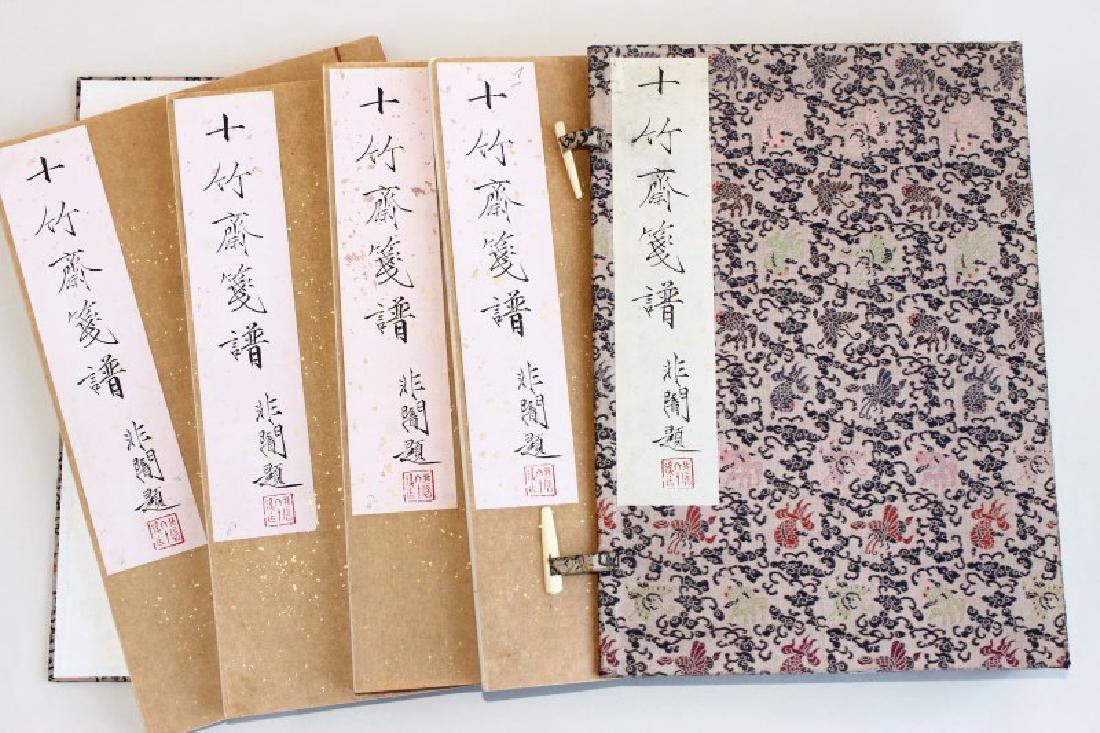 十竹齋箋譜 非闇題
十竹齋箋譜 非闇題
十竹齋箋譜 非闇題
十竹齋箋譜 非闇題
十竹齋箋譜 非闇題